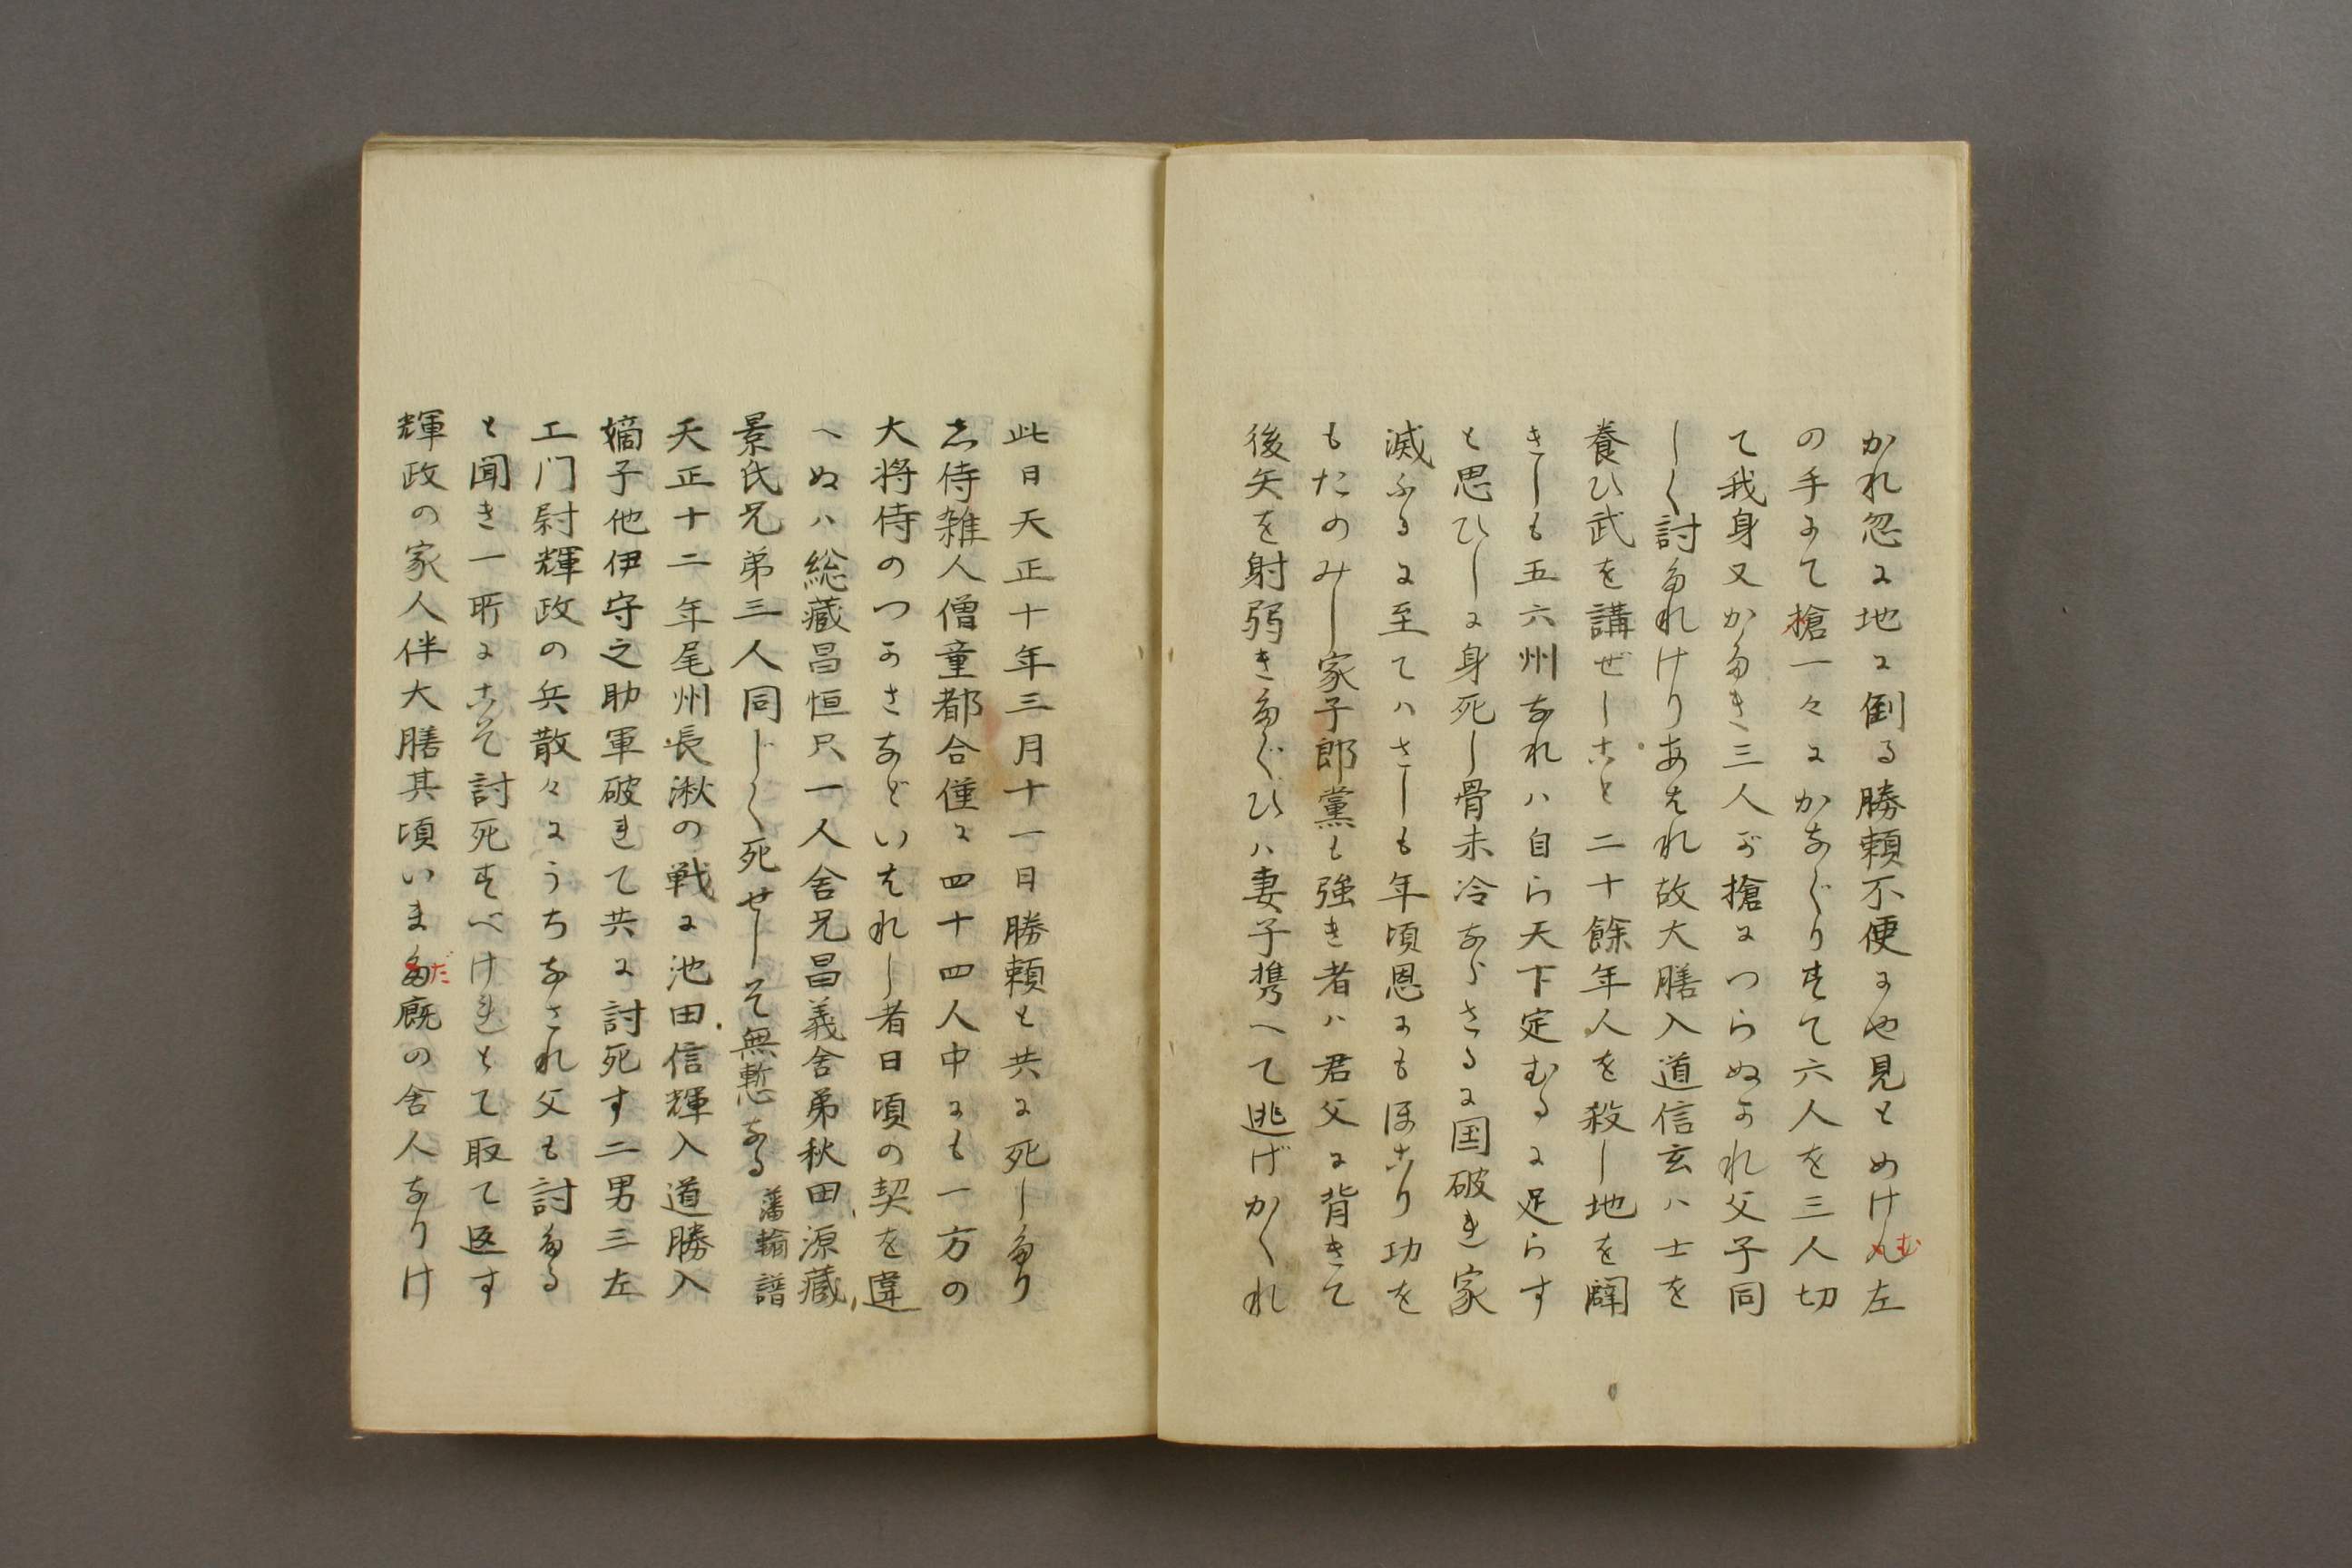 かれ忽に地に倒る勝頼不便にや見とめけん左
の手にて槍一々にかなぐりすて六人を三人切
て我身又かたき三人が槍につらぬかれ父子同
しく討たれけりあはれ故大膳入道信玄ハ士を
養ひ武を講ぜしこと二十餘年人を殺し地を闢
きしも五六州なれハ自ら天下定むるに足らす
と思ひしに身死し骨未冷ならさるに国破れ家
滅ふるに至てハさしも年頃恩にもほこり功を
もたのみし家子郎黨も強き者ハ君父に背きて
後矢を射弱きたぐひハ妻子携へて逃げかくれ
此日天正十年三月十一日勝頼と共に死したり
し侍雑人僧童都合僅に四十四人中にも一方の
大将侍のつかさなどいはれし者日頃の契を違
へぬハ総蔵昌恒只一人舎兄昌義舎弟秋田源蔵
景氏兄弟三人同じく死せしそ無慙なる 藩輪譜
天正十二年尾州長湫の戦に池田信輝入道勝入
嫡子他伊守之助軍破れて共に討死す二男三左
エ门尉輝政の兵散々にうちなされ父も討たる
と聞き一所にこそ討死すべけれとて取て返す
輝政の家人伴大膳其頃いまだ厩の舎人なりけ